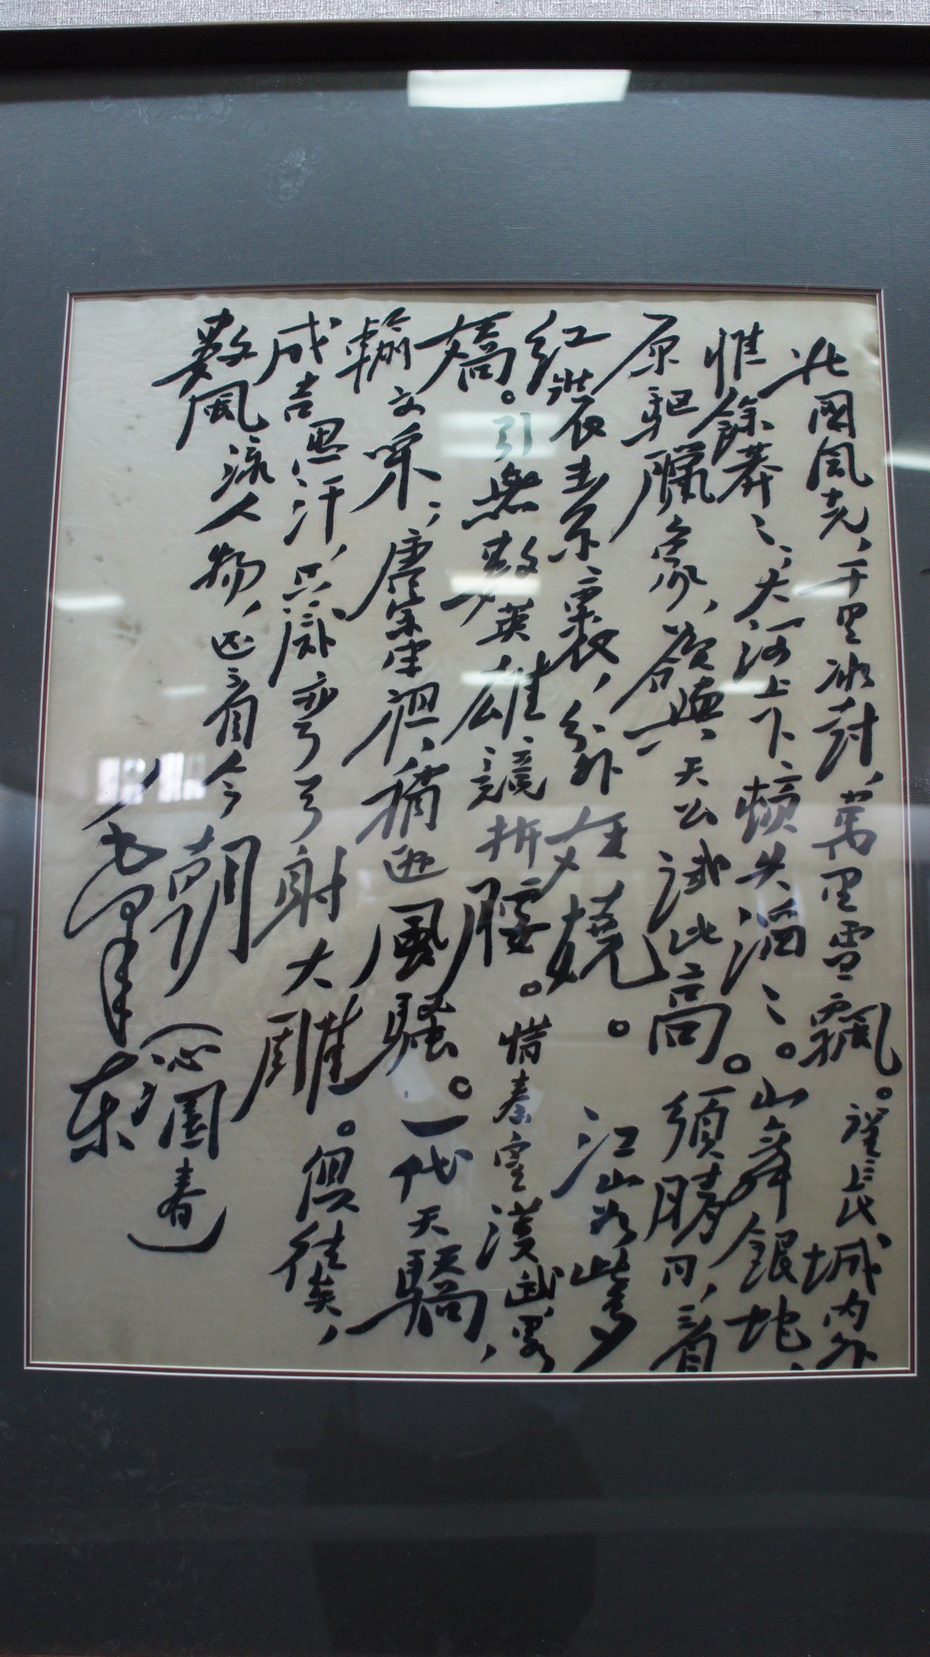 北國風光，千里冰封，萬里雪飄。望長城內外
惟餘莽々；大河上下，頓失滔々。山舞銀蛇，
原驅臘象，欲與天公試比高。須晴日，看
紅裝素裹，分外妖嬈。江山如此多
嬌。引無數英雄競折腰。惜秦皇漢武，畧
輸文采；唐宗宋祖，稍遜風騷。一代天驕，
成吉思汗，只識彎弓射大雕。俱往矣，
數風流人物，还看今朝（沁園春）
毛澤东